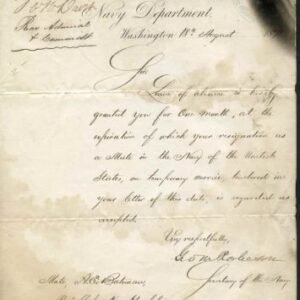 Navy Department,
Rear Admiral
Washington 18th August
Sir
Leave of absence is hereby
granted you for One month, at the
expiration of which your resignation as
a Mate in the Navy of the United
States, on temporary service, tendered in
your letter of this date, is regarded as
accepted.
Very respectfully,
Geo M Robeson
Secretary of the Navy
Mate